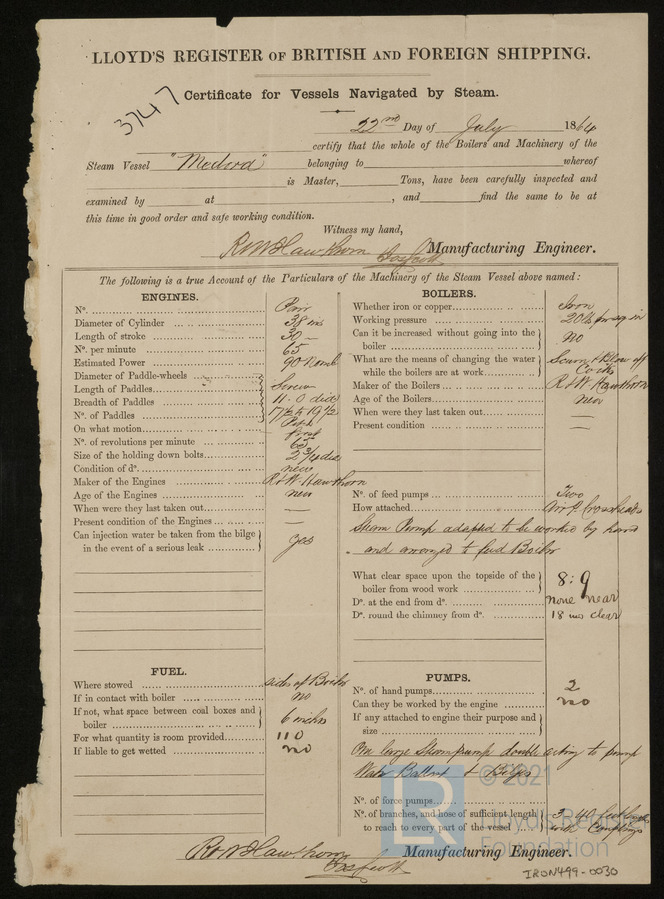 LLOYD'S REGISTER OF BRITISH AND FOREIGN SHIPPING.
Certificate for Vessels Navigated by Steam.
3747
22nd Day of July 1864
certify that the whole of the Boilers and Machinery of the
Steam Vessel "Medord" belonging to whereof
is Master, Tons, have been carefully inspected and
examined by at , and find the same to be at
this time in good order and safe working condition.
Witness my hand,
R&W Hawthorn Manufacturing Engineer.
The following is a true Account of the Particulars of the Machinery of the Steam Vessel above named:
ENGINES.
No. Pair
Diameter of Cylinder 38 ins
Length of stroke 30 —
No. per minute 65
Estimated Power 90 Nom
Diameter of Paddle-wheels
Length of Paddles Screw
Breadth of Paddles 11.0 dia
No. of Paddles 17/2 to 19/2 Pitch
On what motion first
No. of revolutions per minute 65
Size of the holding down bolts 2 3/4 dia
Condition of do. new
Maker of the Engines R&W. Hawthorn
Age of the Engines new
When were they last taken out —
Present condition of the Engines —
Can injection water be taken from the bilge
in the event of a serious leak yes
FUEL.
Where stowed sides of Boiler
If in contact with boiler no
If not, what space between coal boxes and
boiler 6 inches
For what quantity is room provided 110
If liable to get wetted no
BOILERS.
Whether iron or copper Iron
Working pressure 20 lb pr sq in
Can it be increased without going into the
boiler No
What are the means of changing the water Scum & Blow off
while the boilers are at work Cocks
Maker of the Boilers R&W. Hawthorn
Age of the Boilers new
When were they last taken out —
Present condition —
No. of feed pumps Two
How attached Air P. Crossheads
Steam Pump adapted to be worked by hand
and arranged to feed Boiler
What clear space upon the topside of the
boiler from wood work 8:9
Do. at the end from do. none near
Do. round the chimney from do. 18 ins clear
PUMPS.
No. of hand pumps 2
Can they be worked by the engine no
If any attached to engine their purpose and
size
One large Steam pump double acting to pump
Water Ballast & Bilges
No. of force pumps
No. of branches, and hose of sufficient length 3, 40 feet lengths
to reach to every part of the vessel with Couplings
R&W Hawthorn Manufacturing Engineer.
© 2021
LR
Lloyd's Register
Foundation
IRON499-0030